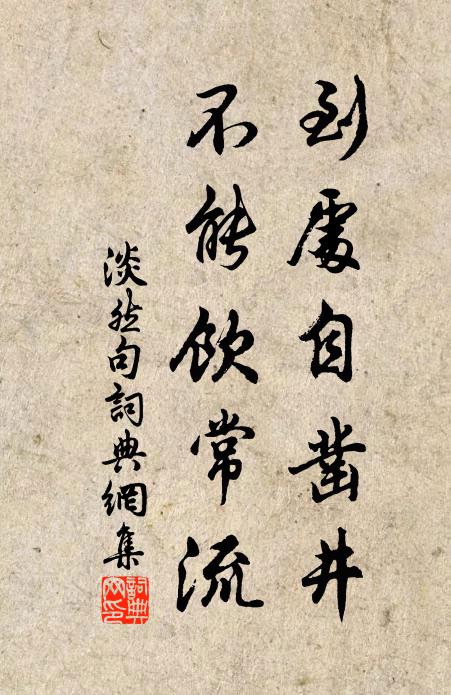 到處自鑿井
不能飲常流
淡然句詞典網集
詞典
网印